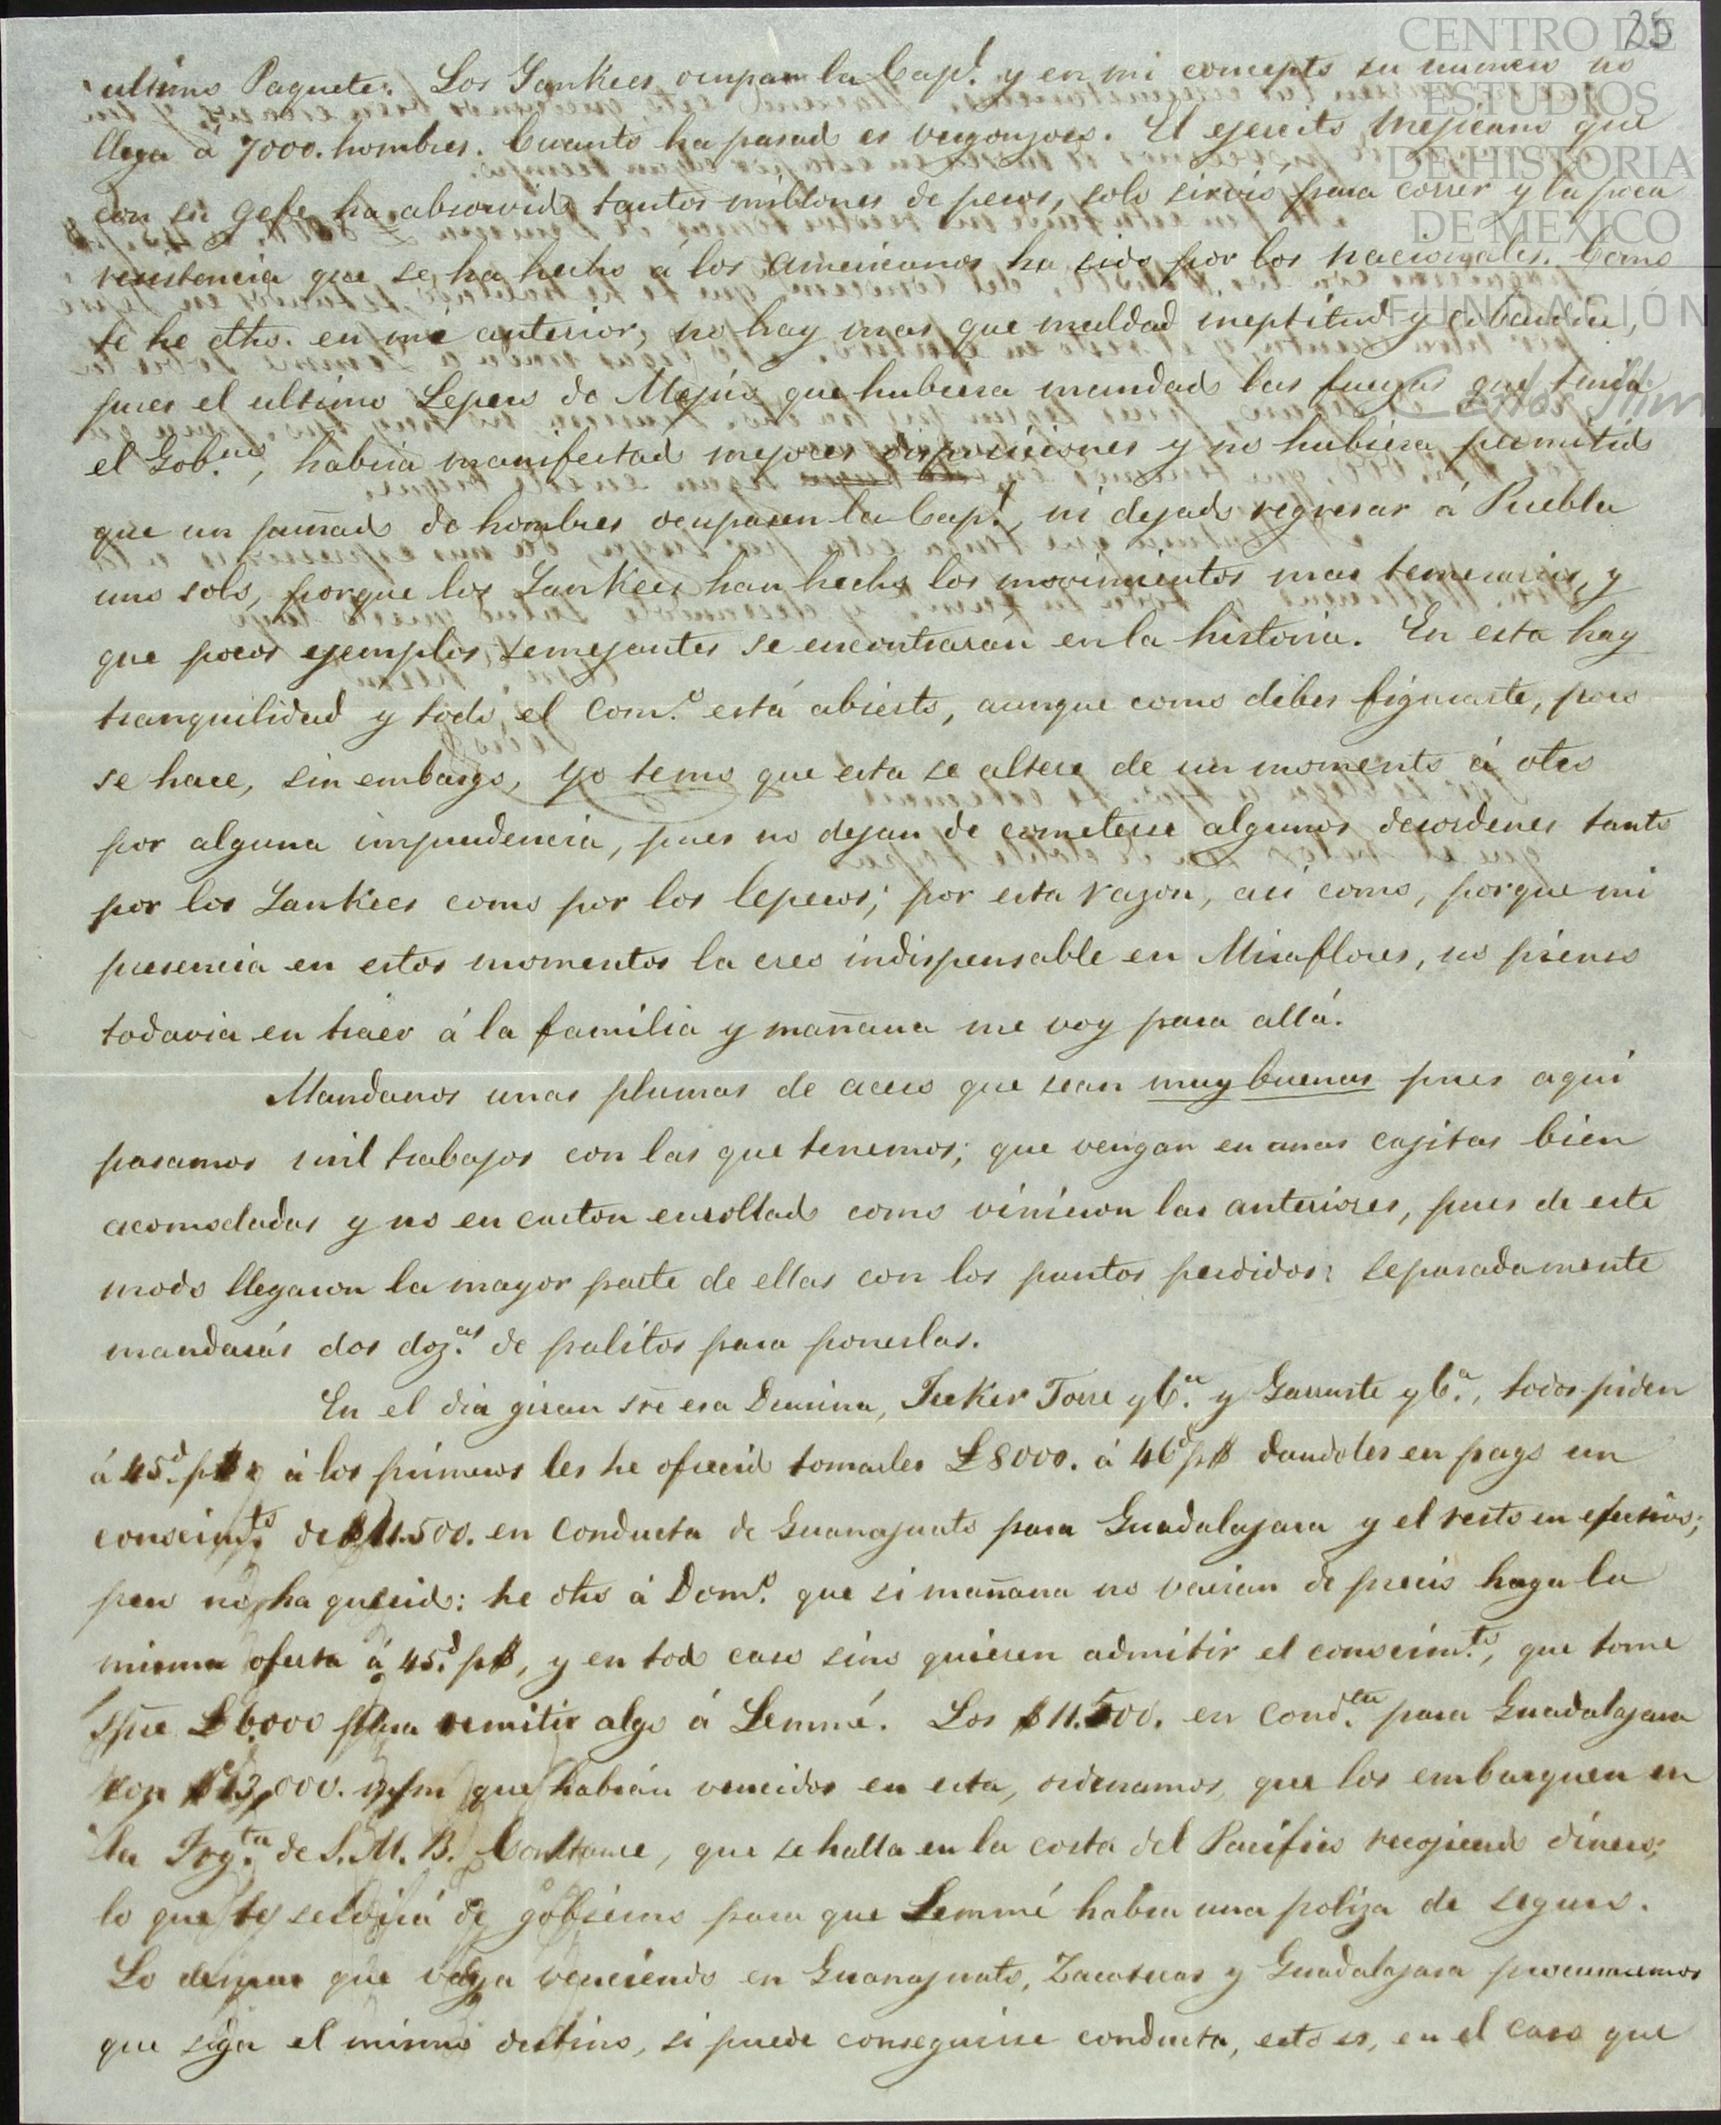 25
CENTRO DE
ESTUDIOS
DE HISTORIA
DE MEXICO
FUNDACIÓN
Carlos Slim
ultimo Paquete. Los Yankees ocupan la Cap.l y en mi concepto su numero no
llega á 7000. hombres. Cuanto ha pasado es vergonzoso. El ejercito Mejicano que
con su gefe ha absorvido tantos millones de pesos, solo sirvió para correr y la poca
resistencia que se ha hecho á los Americanos ha sido por los nacionales. Como
te he dho. en mi anterior, no hay mas que maldad ineptitud y cobardia,
pues el ultimo Lepero de Mejico que hubiera mandado las fuerzas que tenia
el Gob.no, habria manifestado mejores disposiciones y no hubiera permitido
que un puñado de hombres ocupasen la Cap.l, ni dejado regresar á Puebla
uno solo, porque los Yankees han hecho los movimientos mas temerarios, y
que pocos ejemplos semejantes se encontraran en la historia. En esta hay
tranquilidad y todo el Com.o está abierto, aunque como debes figurarte, poco
se hace, sin embargo, yo temo que esta se altere de un momento á otro
por alguna imprudencia, pues no dejan de cometerse algunos desordenes tanto
por los Yankees como por los leperos; por esta razon, asi como, porque mi
presencia en estos momentos la creo indispensable en Miraflores, no pienso
todavia en traer á la familia y mañana me voy para allá.
Mandanos unas plumas de acero que sean muy buenas pues aqui
pasamos mil trabajos con las que tenemos; que vengan en unas cajitas bien
acomodadas y no en carton enrollado como vinieron las anteriores, pues de este
modo llegaron la mayor parte de ellas con los puntos perdidos: separadamente
mandarás dos doz.as de palitos para ponerlas.
En el dia giran sre esa Demina, Tecker Torre y C.a y Garruste y C.a, todos piden
á 45.d p$ á los primeros les he ofrecido tomarles £8000. á 46d p$ dandoles en pago un
conocim.to de $11.500. en Conducta de Guanajuato para Guadalajara y el resto en efectivo;
pero no ha querido: he dho á Dom.o que si mañana no varian de precio haga la
misma oferta á 45.d p$, y en todo caso sino quieren admitir el conocim.to, que tome
spre £6.000 para remitir algo á Lemmé. Los $11.500. en Cond.ta para Guadalajara
con $13,000. que habrán vencidos en esta, ordenamos, que los embarquen en
la Frg.ta de S.M.B. Constance, que se halla en la costa del Pacifico recojiendo dinero;
lo que te servirá de gobierno para que Lemmé habra una poliza de seguro.
Lo demas que vaya venciendo en Guanajuato, Zacatecas y Guadalajara procuraremos
que siga el mismo destino, si puede conseguirse conducta, esto es, en el caso que